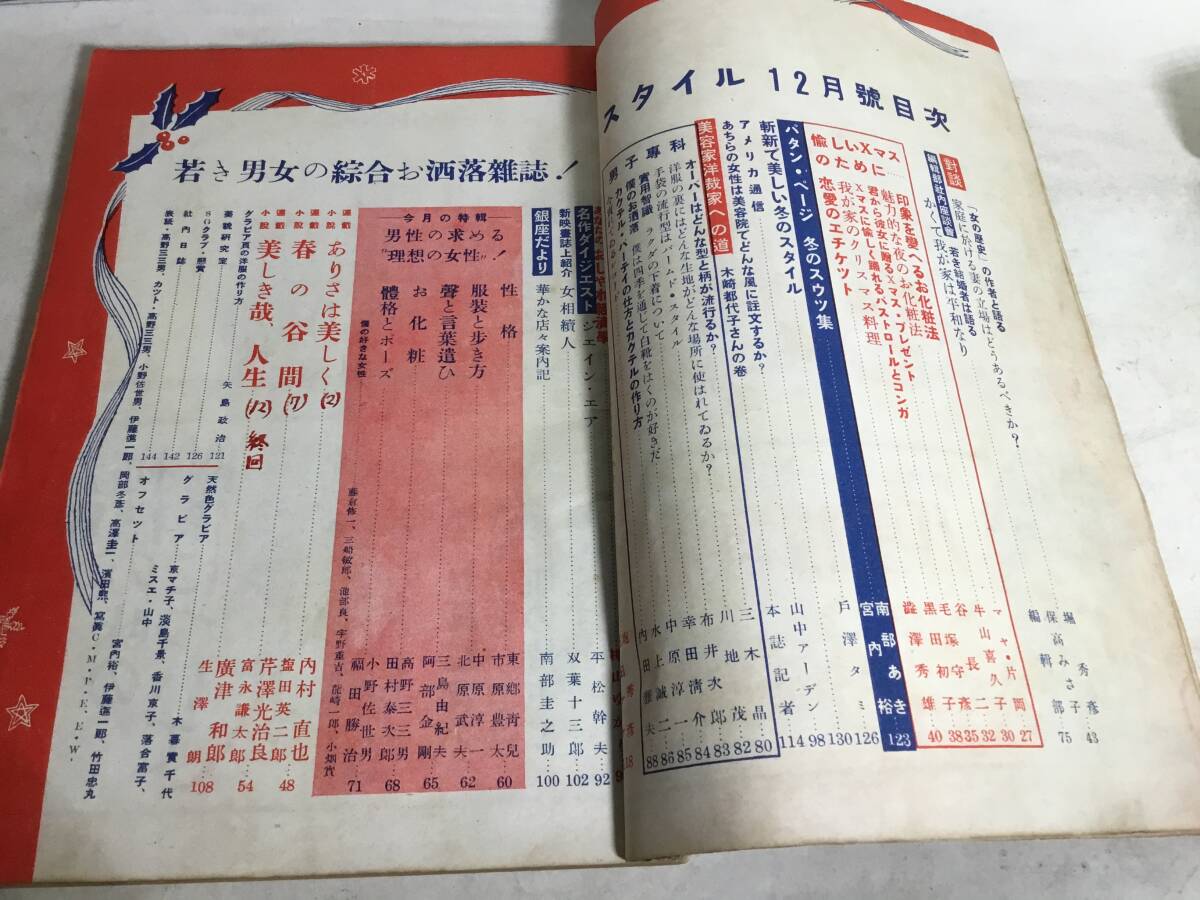 スタイル 12月號目次
對談
「女の歴史」の作者と語る
家庭に於ける妻の立場はどうあるべきか?
堀秀彦
43
編輯部社内座談會
若き結婚者は語る
かくて我が家は平和なり
保高みさ子
編輯部
75
愉しいXマスのために
印象を變へるお化粧法
マヤ・片岡 27
魅力的な夜のお化粧法
牛山喜久子 30
君から彼女に贈るXマス・プレゼント
Xマスに愉しく踊れるパストロールとコンガ
我が家のクリスマス料理
恋愛のエチケット
澁澤秀雄 40
パタン・ページ 冬のスウツ集
南部あき
宮内裕
123
斬新で美しい冬のスタイル
戸澤タミ 126
130
アメリカ通信
山中アーデン 98
あちらの女性は美容院でどんな風に註文するか?
本誌記者 114
美容家洋裁家への道
木崎都代子さんの卷
80
男子專科
オーバーはどんな型と柄が流行るか?
三木晶 82
洋服の裏にはどんな生地がどんな場所に使はれてゐるか?
川地茂 83
手袋の流行型はパームド・スタイル
實用智識 ラクダの下着について
僕のお洒落 僕は四季を通して白靴をはくのが好きだ
カクテル・パーティの仕方とカクテルの作り方
内藤雅夫 88
若き男女の綜合お洒落雜誌!
名作ダイジェスト ジェイン・エア
本松幹夫 92
新映畫誌上紹介 女相續人
双葉十三郎 102
銀座だより 華かな店々案内記
南部圭之助 100
今月の特輯
男性の求める
"理想の女性"!
性格
東郷青兒 60
服装と歩き方
市原豊太
中原淳一 62
聲と言葉遣ひ
北原武夫
三島由紀夫 65
お化粧
阿部金剛
高野三三男 68
體格とポーズ
田村泰次郎
小野佐世男
福田勝治 71
僕の好きな女性
藤倉修一、三船敏郎、池部良、宇野重吉、龍崎一郎、小畑實
連載小說
ありさは美しく(2)
内村直也
猪田英二郎 48
連載小說
春の谷間(7)
芹澤光治良
富永謙太郎 54
連載小說
美しき哉、人生(12)終回
廣津和郎
生澤朗 108
グラビア頁の洋服の作り方
美貌研究室
矢島政治 121
SGクラブ・懸賞
126
社内日誌
142
144
天然色グラビア
木暮實千代
グラビア
京マチ子、淡島千景、香川京子、落合富子、
ミスエ・山中
オフセット
宮内裕、伊藤進一郎、竹田忠丸
表紙・高野三三男、カット・高野三三男、小野佐世男、伊藤進一郎、岡部冬彦、高澤圭一、濱田煕、寫眞C・M・P・E・E・W